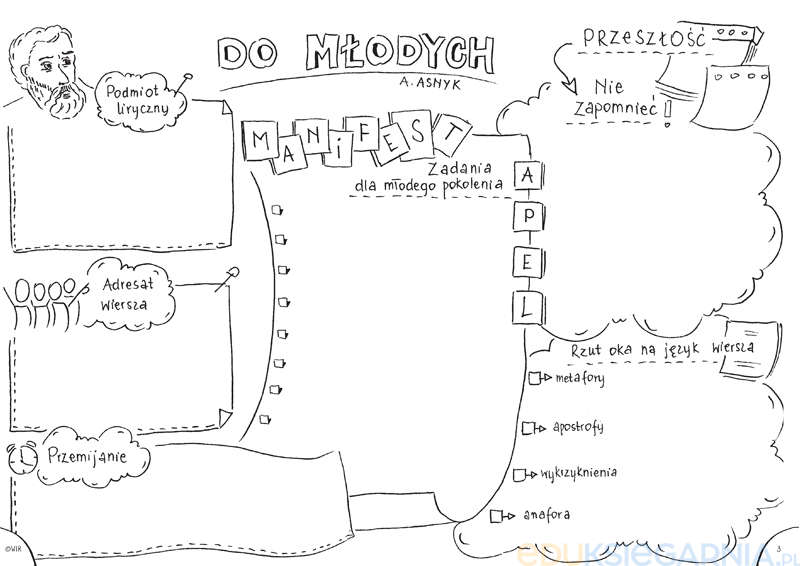 DO MŁODYCH
A. ASNYK
Podmiot
liryczny
MANiFEST
Zadania
dla młodego pokolenia
APEL
PRZESZŁOŚĆ
Nie
Zapomnieć!
Adresat
Wiersza
Przemijanie
Rzut oka na język wiersza
metafory
apostrofy
wykrzyknienia
anafora
©WiR
3
eDUKSIĘGARNIA.PL